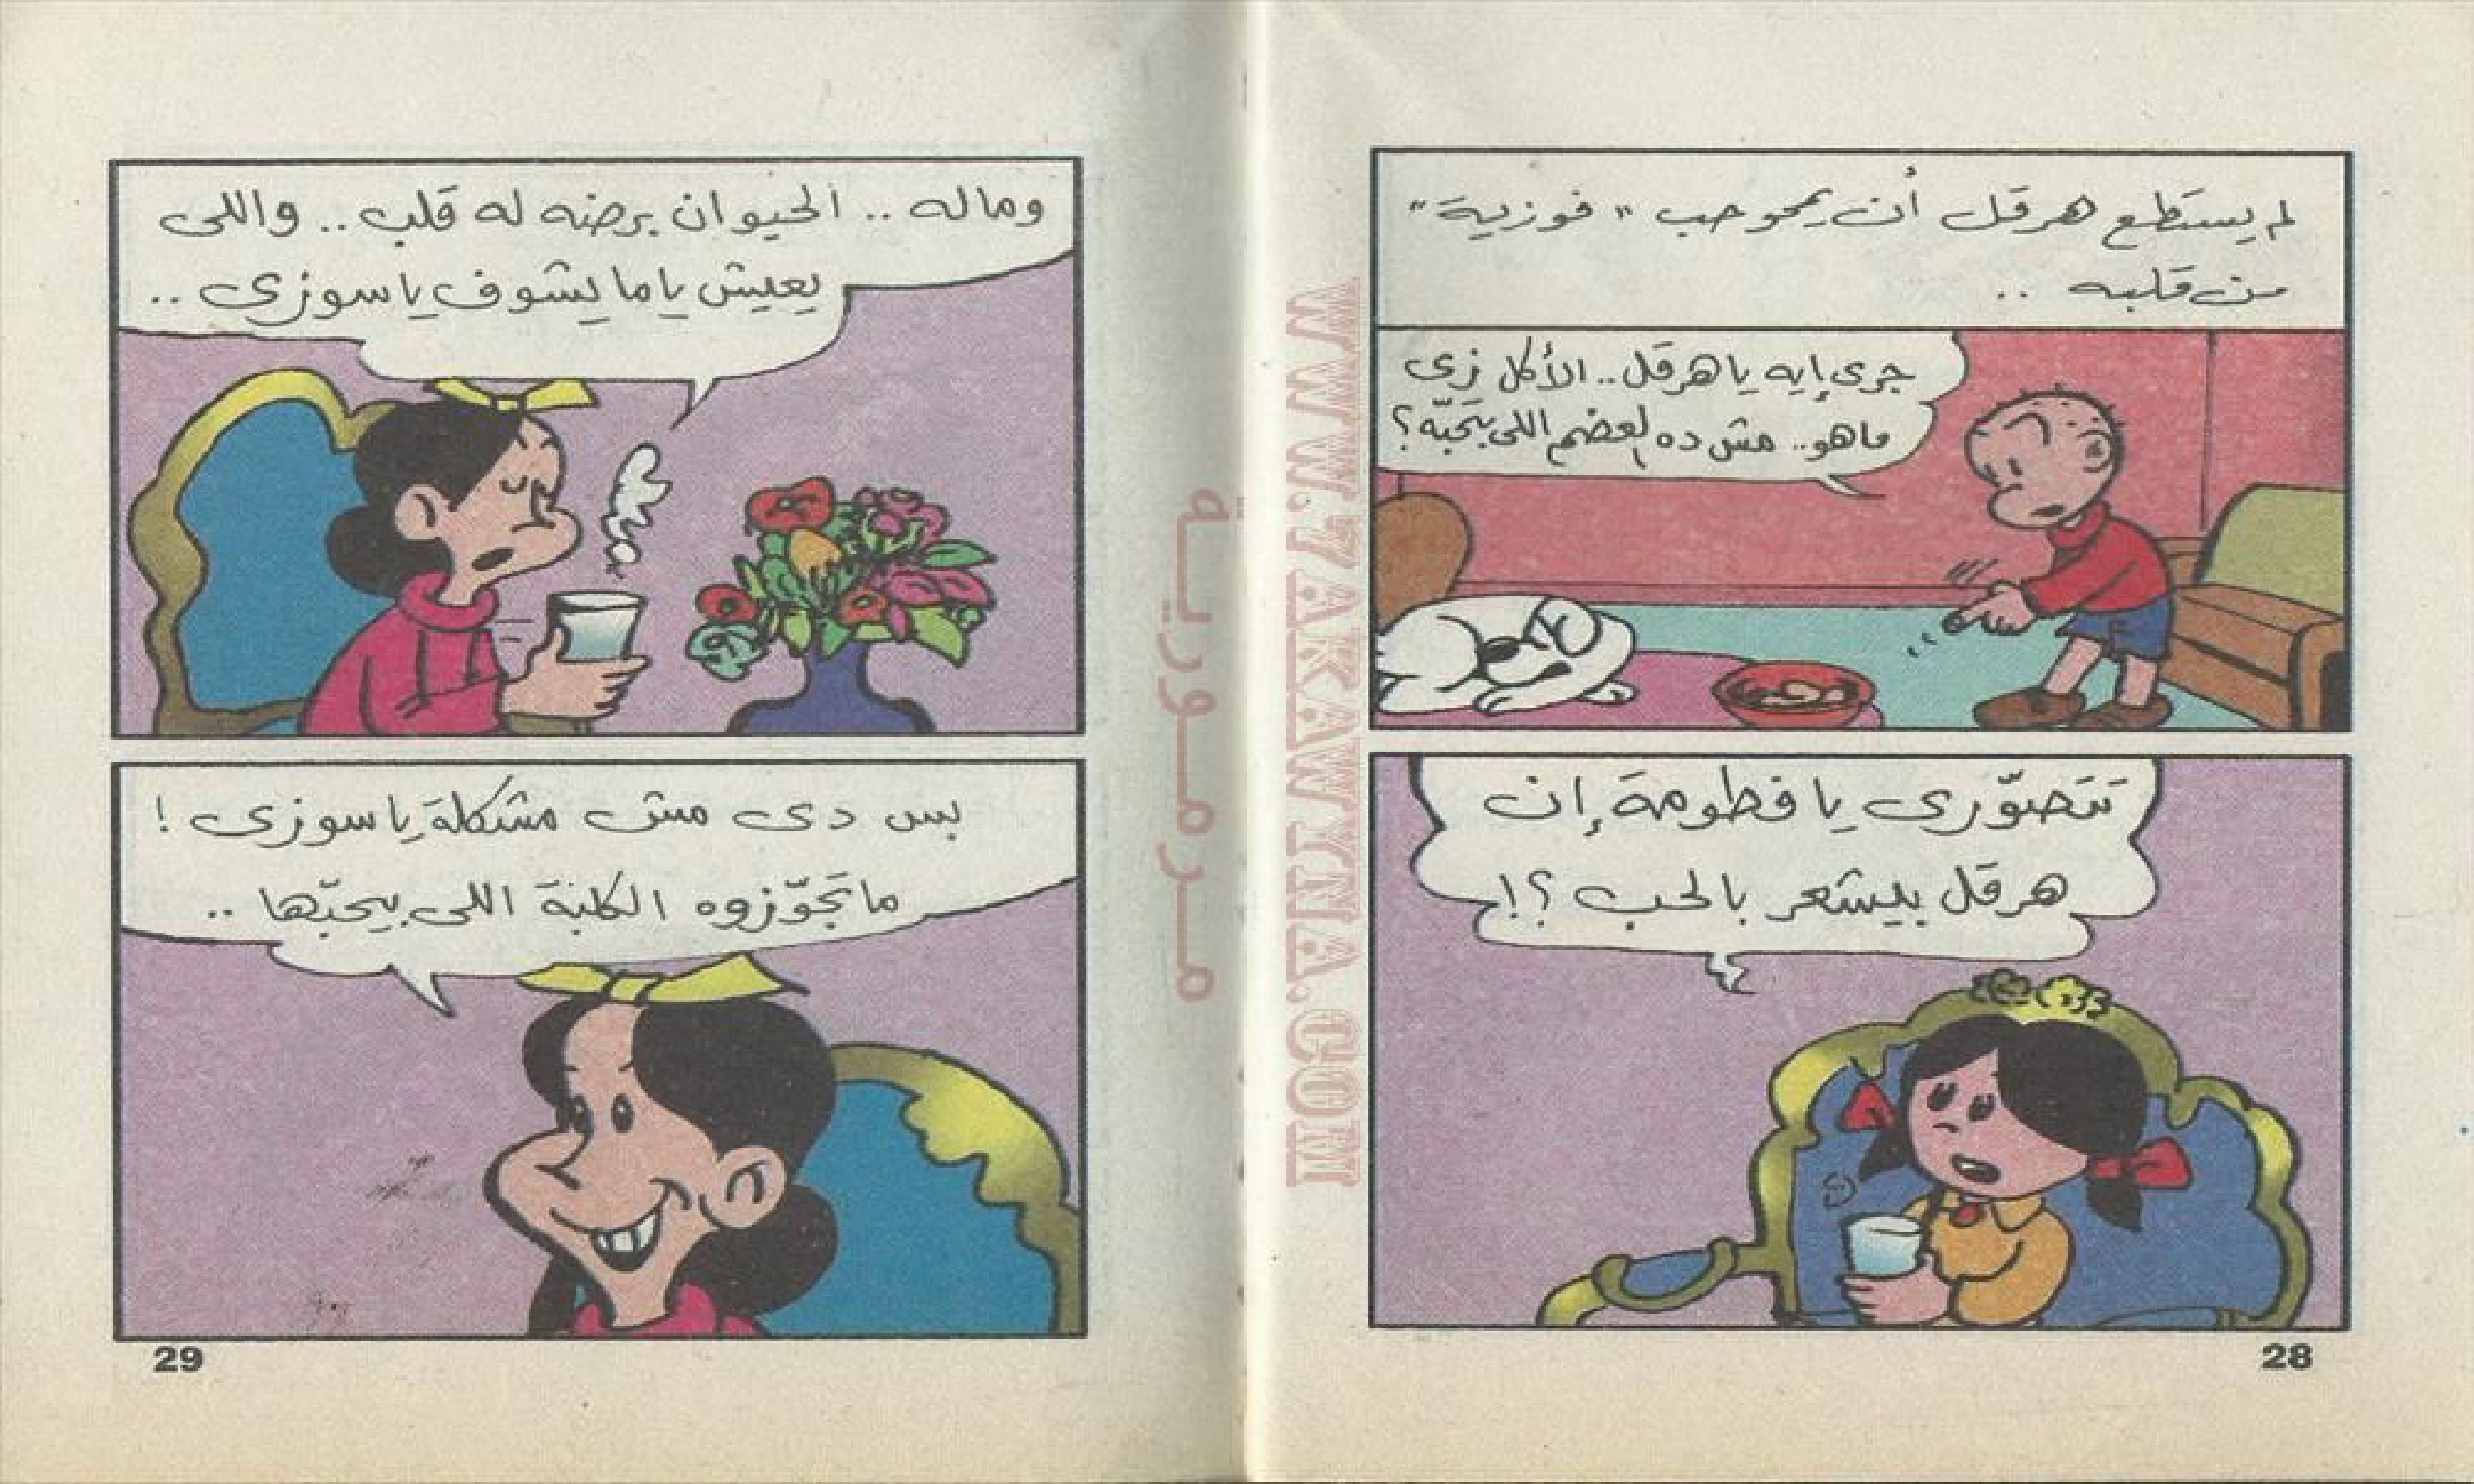 لم يستطع هرقل أن يمحو حب "فوزية"
من قلبه ..
جرى إيه يا هرقل.. الأكل زى
ما هو.. مش ده العضم اللى بتحبّه؟
تتصوّرى يا فطومة إن
هرقل بيشعر بالحب ؟!
28
وماله .. الحيوان برضه له قلب .. واللى
يعيش ياما يشوف يا سوزى ..
بس دى مش مشكلة يا سوزى !
ما تجوّزوه الكلبة اللى بيحبّها ..
29
WWW.7AKAWYNA.COM
مرمورية